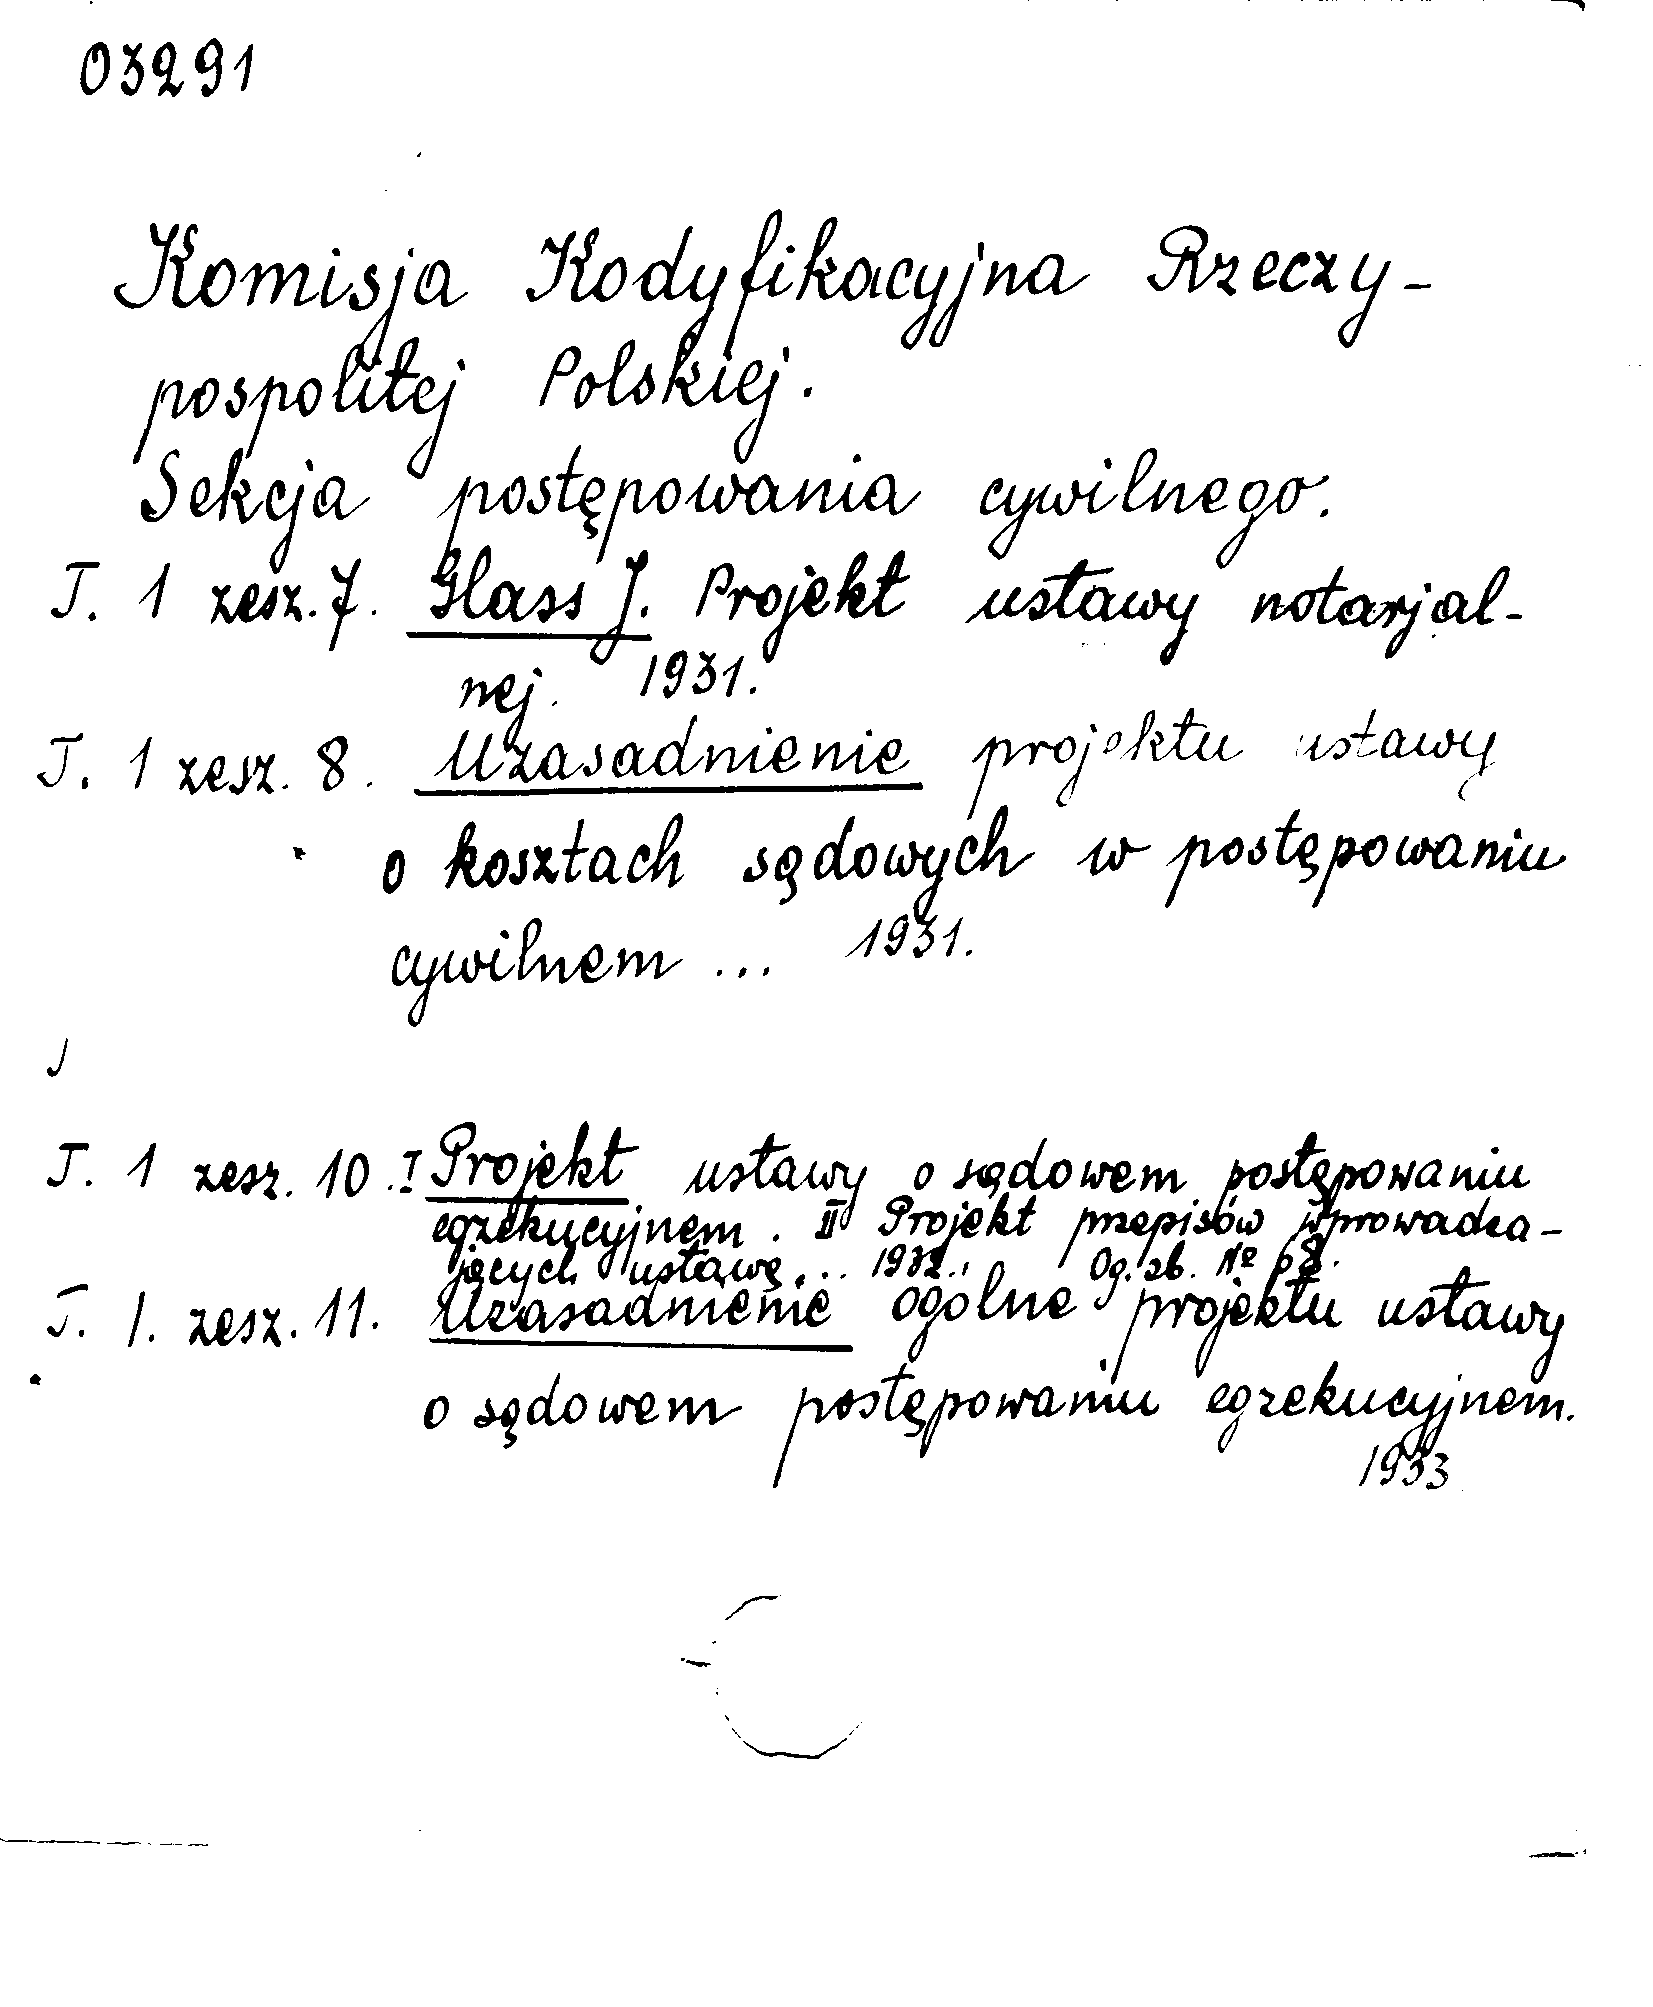 03291
Komisja Kodyfikacyjna Rzeczy-
pospolitej Polskiej.
Sekcja postępowania cywilnego.
T. 1 zesz. 7. Glass J. Projekt ustawy notarjal-
nej. 1931.
T. 1 zesz. 8. Uzasadnienie projektu ustawy
o kosztach sądowych w postępowaniu
cywilnem ... 1931.
J
T. 1 zesz. 10. I Projekt ustawy o sądowem postępowaniu
egzekucyjnem. II Projekt przepisów wprowadza-
jących ustawę ... 1932. Og. zb. № 68.
T. 1. zesz. 11. Uzasadnienie ogólne projektu ustawy
o sądowem postępowaniu egzekucyjnem.
1933